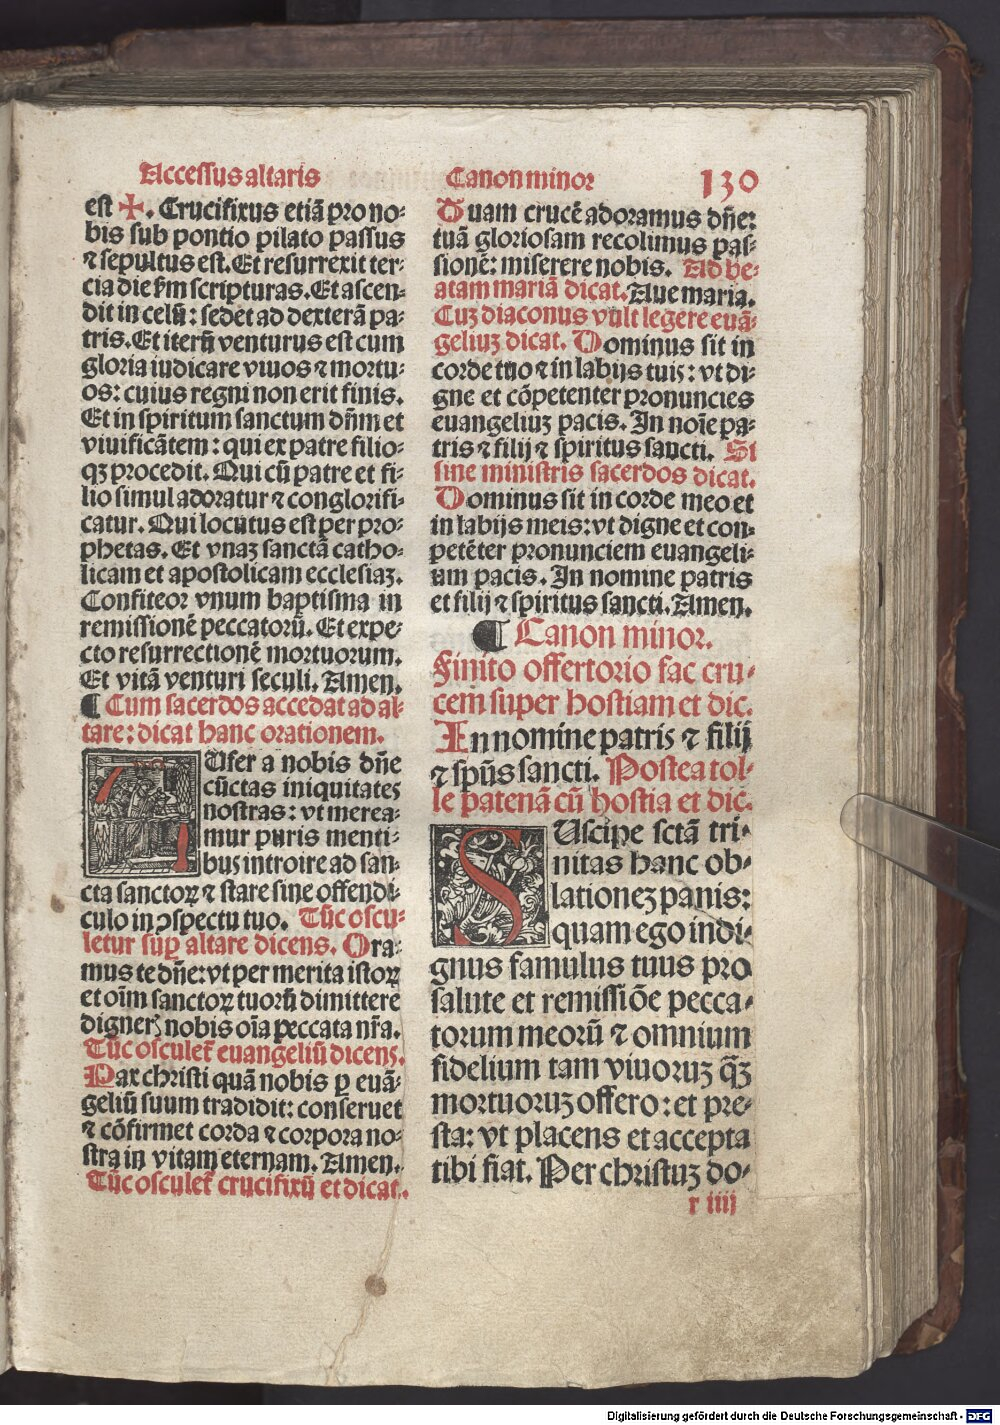 Accessus altaris
est ✠. Crucifixus etiā pro no⸗
bis sub pontio pilato passus
⁊ sepultus est. Et resurrexit ter⸗
cia die ẜm scripturas. Et ascen⸗
dit in celū: sedet ad dexterā pa⸗
tris. Et iterū venturus est cum
gloria iudicare viuos ⁊ mortu⸗
os: cuius regni non erit finis.
Et in spiritum sanctum dn̄m et
viuificātem: qui ex patre filio⸗
qꝫ procedit. Qui cū patre et fi⸗
lio simul adoratur ⁊ conglorifi⸗
catur. Qui locutus est per pro⸗
phetas. Et vnaꝫ sanctā catho⸗
licam et apostolicam ecclesiaꝫ.
Confiteor vnum baptisma in
remissionē peccatorū. Et expe⸗
cto resurrectionē mortuorum.
Et vitā venturi seculi. Amen.
¶ Cum sacerdos accedat ad al⸗
tare: dicat hanc orationem.
AUfer a nobis dn̄e
cūctas iniquitates
nostras: vt merea⸗
mur puris menti⸗
bus introire ad san⸗
cta sanctoꝝ ⁊ stare sine offendi⸗
culo in ꝯspectu tuo. Tūc oscu⸗
letur suꝑ altare dicens. Ora⸗
mus te dn̄e: vt per merita istoꝝ
et oīm sanctoꝝ tuorū dimittere
digneris nobis oīa peccata nr̄a.
Tūc osculet᷑ euangeliū dicens.
Pax christi quā nobis ꝑ euā⸗
geliū suum tradidit: conseruet
⁊ cōfirmet corda ⁊ corpora no⸗
stra in vitam eternam. Amen.
Tūc osculet᷑ crucifixū et dicat.
Canon minor 130
Tuam crucē adoramus dn̄e:
tuā gloriosam recolimus pas⸗
sionē: miserere nobis. Ad be⸗
atam mariā dicat. Aue maria.
Cuꝫ diaconus vult legere euā⸗
geliuꝫ dicat. Dominus sit in
corde tuo ⁊ in labijs tuis: vt di⸗
gne et cōpetenter pronuncies
euangeliuꝫ pacis. In noīe pa⸗
tris ⁊ filij ⁊ spiritus sancti. Si
sine ministris sacerdos dicat.
Dominus sit in corde meo et
in labijs meis: vt digne et con⸗
petēter pronunciem euangeli⸗
um pacis. In nomine patris
et filij ⁊ spiritus sancti. Amen.
¶ Canon minor.
Finito offertorio fac cru⸗
cem̄ super hostiam et dic.
In nomine patris ⁊ filij
⁊ spūs sancti. Postea tol⸗
le patenā cū hostia et dic.
SUscipe sctā tri⸗
nitas hanc ob⸗
lationeꝫ panis:
quam ego indi⸗
gnus famulus tuus pro
salute et remissiōe pecca⸗
torum meorū ⁊ omnium
fidelium tam viuoruꝫ qꝫ̄
mortuoruꝫ offero: et pre⸗
sta: vt placens et accepta
tibi fiat. Per christuꝫ do⸗
r iiij
Digitalisierung gefördert durch die Deutsche Forschungsgemeinschaft - DFG